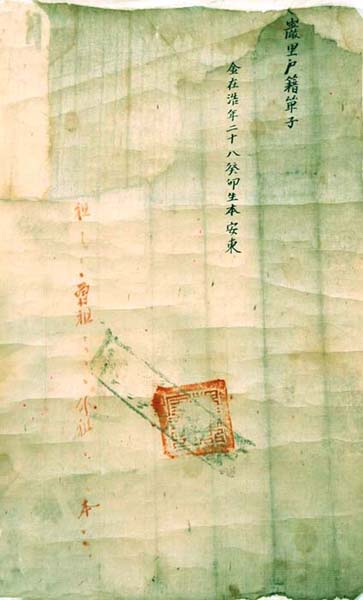 巖里戶籍單子
金在浩年二十八癸卯生本安東
祖 曾祖 外祖 本